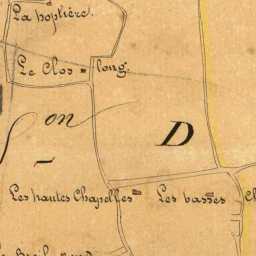 La hoptière.
Le Clos long.
on
D
Les hautes Chapelles
Les basses Ch